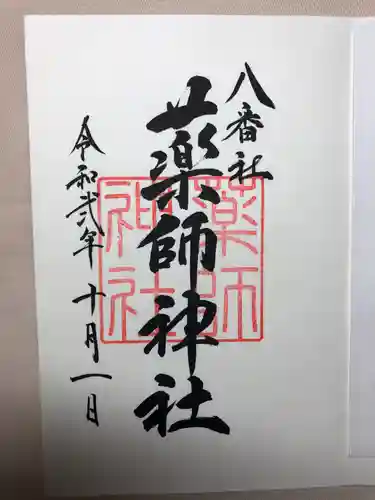 八番社
薬師神社
令和弐年十月一日
薬師
神社